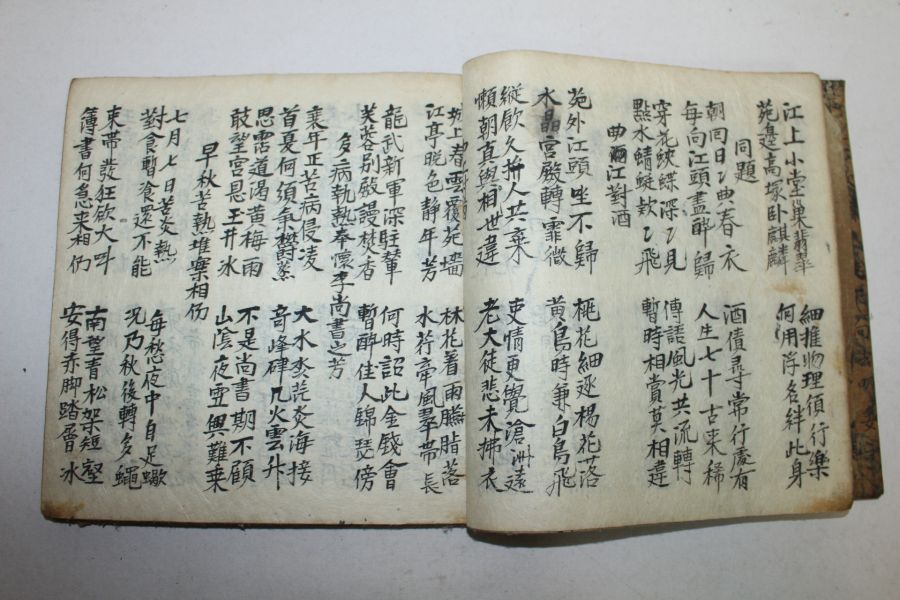 江上小堂巢翡翠 細推物理須行樂
苑邊高塚卧麒麟 何用浮名絆此身
同題
朝回日〻典春衣 酒債尋常行處有
每向江頭盡醉歸 人生七十古來稀
穿花蛺蝶深〻見 傳語風光共流轉
點水蜻蜓欵〻飛 暫時相賞莫相違
曲江對酒
苑外江頭坐不歸 桃花細逐楊花落
水晶宮殿轉霏微 黃鳥時兼白鳥飛
縱飮久拚人共棄 吏情更覺滄洲遠
懶朝真與相世違 老大徒悲未拂衣
城上春雲覆苑墻 林花著雨臙脂落
江亭晚色靜年芳 水荇牽風翠帶長
龍武新軍深駐輦 何時詔此金錢會
芙蓉別殿謾焚香 暫醉佳人錦瑟傍
多病執熱奉懷李尚書之芳
衰年正苦病侵凌 大水淼茫炎海接
首夏何須氣欝蒸 奇峰硉兀火雲升
思霑道渴黃梅雨 不是尚書期不顧
敢望宮恩玉井冰 山陰夜雪興難乘
早秋苦熱堆案相仍
七月七日苦炎熱 每愁夜中自足蠍
對食暫飡還不能 况乃秋後轉多蠅
束帶發狂欲大叫 南望青松架短壑
簿書何急來相仍 安得赤脚踏層冰